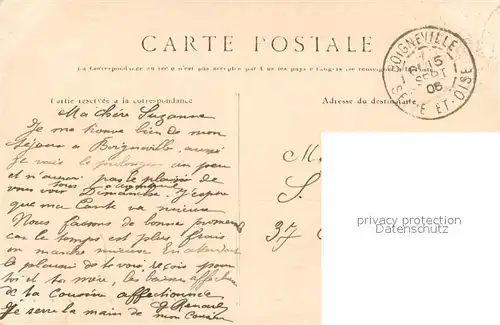 CARTE POSTALE
La Correspondance au recto n'est pas acceptée par tous les pays étrangers
BOIGNEVILLE
15
SEPT
06
SEINE ET-OISE
Partie réservée à la correspondance
Adresse du destinataire
Ma chère Suzanne
Je me trouve bien de mon
séjour à Boigneville aussi
je vais le prolonger un peu
et n'aurai pas le plaisir de
vous voir tous Dimanche. J'espère
que ma tante va mieux
Nous faisons de bonnes promenades
car le temps est plus frais
on marche mieux En attendant
le plaisir de te voir, reçois pour
toi et ta mère, les baisers
de ta cousine affectionnée
Renard
Je serre la main de mon cousin
M.
S.
37
privacy protection
Datenschutz